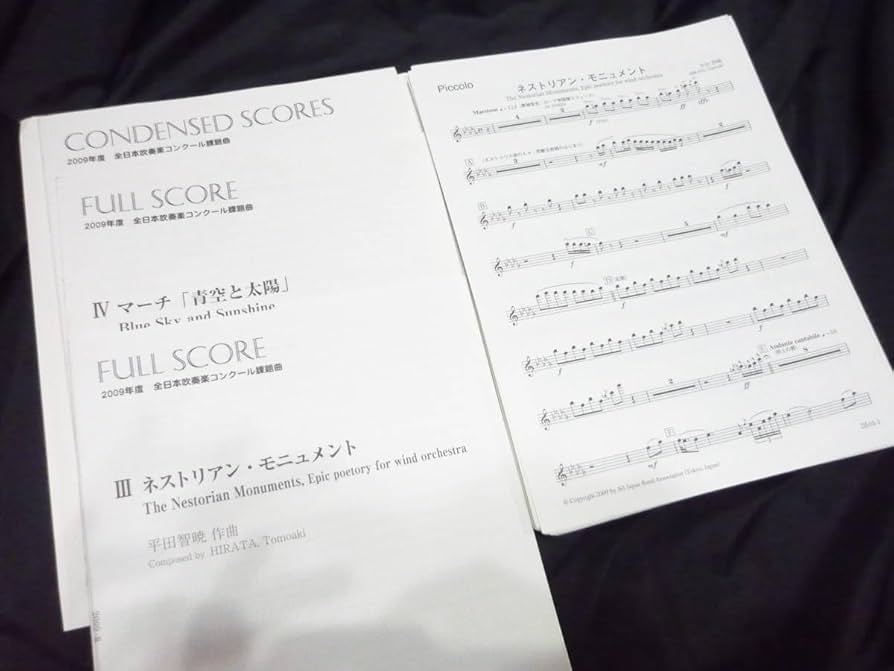 CONDENSED SCORES
2009年度 全日本吹奏楽コンクール課題曲
FULL SCORE
2009年度 全日本吹奏楽コンクール課題曲
Ⅳ マーチ「青空と太陽」
Blue Sky and Sunshine
FULL SCORE
2009年度 全日本吹奏楽コンクール課題曲
Ⅲ ネストリアン・モニュメント
The Nestorian Monuments, Epic poetory for wind orchestra
平田智暁 作曲
Composed by HIRATA, Tomoaki
Piccolo
ネストリアン・モニュメント
The Nestorian Monuments, Epic poetory for wind orchestra
Maestoso
4
2
f
ff
A
9
mf
2
B
f
f
C
f
5
mf
D
f
f
2
E
Andante cantabile
8
ff
F
mf
mf
© Copyright 2009 by All Japan Band Association (Tokyo, Japan)